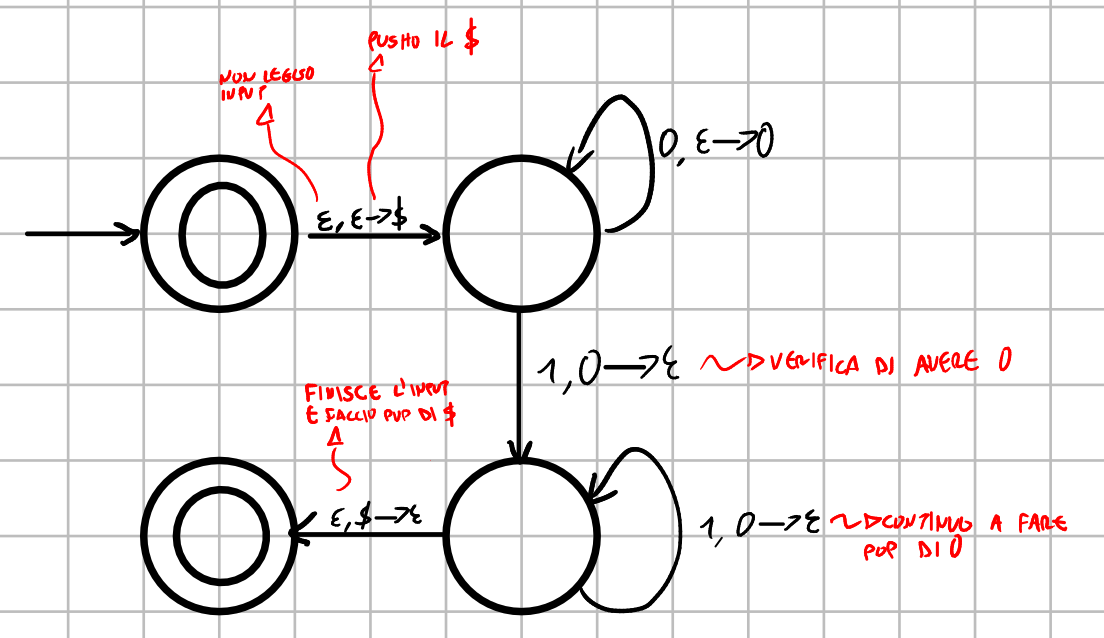 PUSHO IL $
NON LEGGO
INPUT
0, ε→0
ε, ε→$
1, 0→ε
VERIFICA DI AVERE 0
FINISCE L'INPUT
E FACCIO POP DI $
ε, $→ε
1, 0→ε
CONTINUO A FARE
POP DI 0